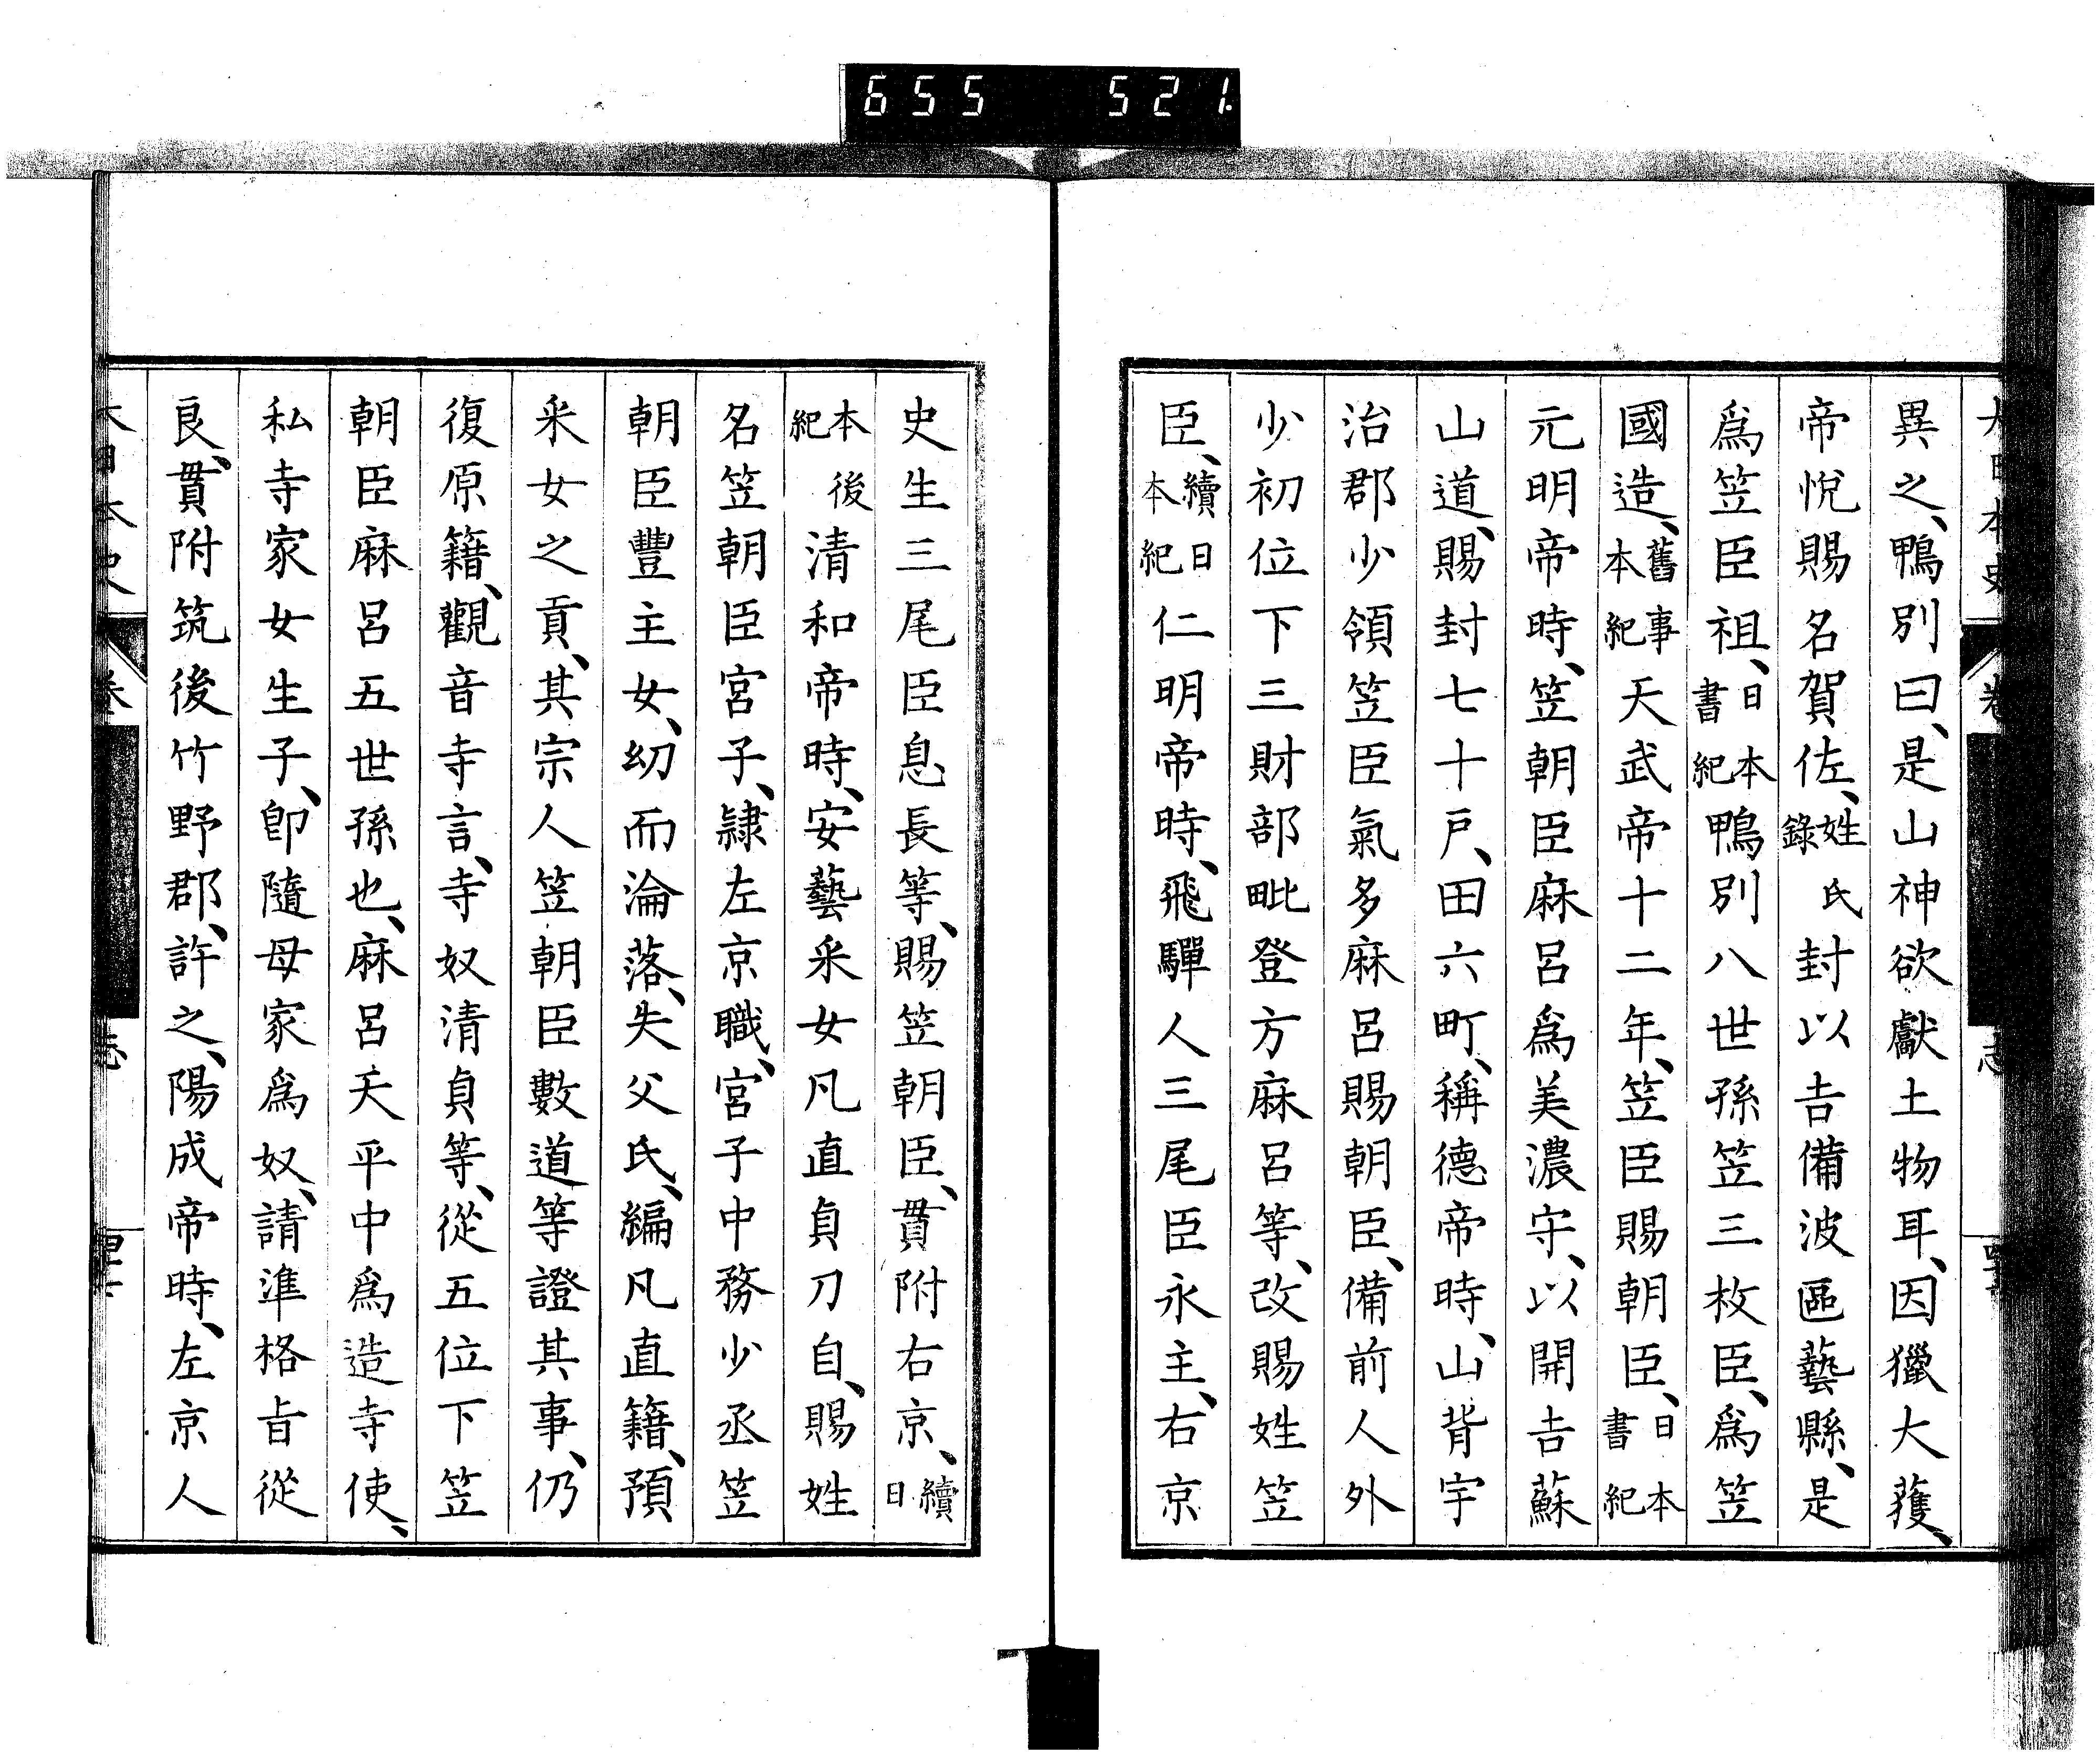 655 521
異之、鴨別曰、是山神欲獻土物耳、因獵大獲、
帝悅賜名賀佐、姓氏錄封以吉備波區藝縣、是
爲笠臣祖、日本書紀鴨別八世孫笠三枚臣、爲笠
國造、舊事本紀天武帝十二年、笠臣賜朝臣、日本書紀
元明帝時、笠朝臣麻呂爲美濃守、以開吉蘇
山道、賜封七十戸、田六町、稱德帝時、山背宇
治郡少領笠臣氣多麻呂賜朝臣、備前人外
少初位下三財部毗登方麻呂等、改賜姓笠
臣、續日本紀仁明帝時、飛驒人三尾臣永主、右京
史生三尾臣息長等、賜笠朝臣、貫附右京、續日
本後紀清和帝時、安藝釆女凡直貞刀自、賜姓
名笠朝臣宮子、隷左京職、宮子中務少丞笠
朝臣豐主女、幼而淪落、失父氏、編凡直籍、預
釆女之貢、其宗人笠朝臣數道等證其事、仍
復原籍、觀音寺言、寺奴清貞等、從五位下笠
朝臣麻呂五世孫也、麻呂天平中爲造寺使、
私寺家女生子、卽隨母家爲奴、請準格旨從
良、貫附筑後竹野郡、許之、陽成帝時、左京人
大日本史 卷 志